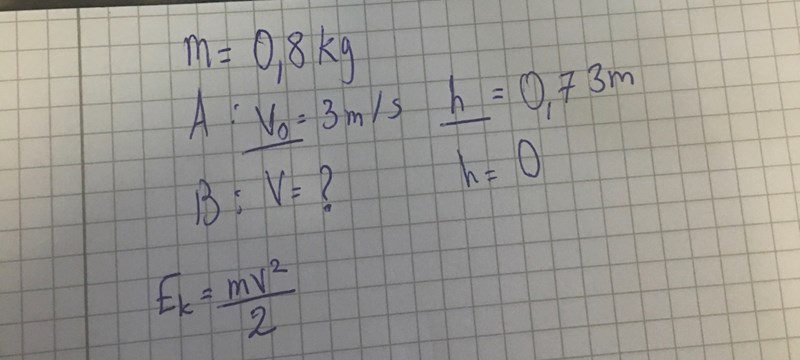 m = 0,8 kg
A : V₀ = 3 m/s h = 0,73m
B : V = ? h = 0
Eₖ = mv²/2